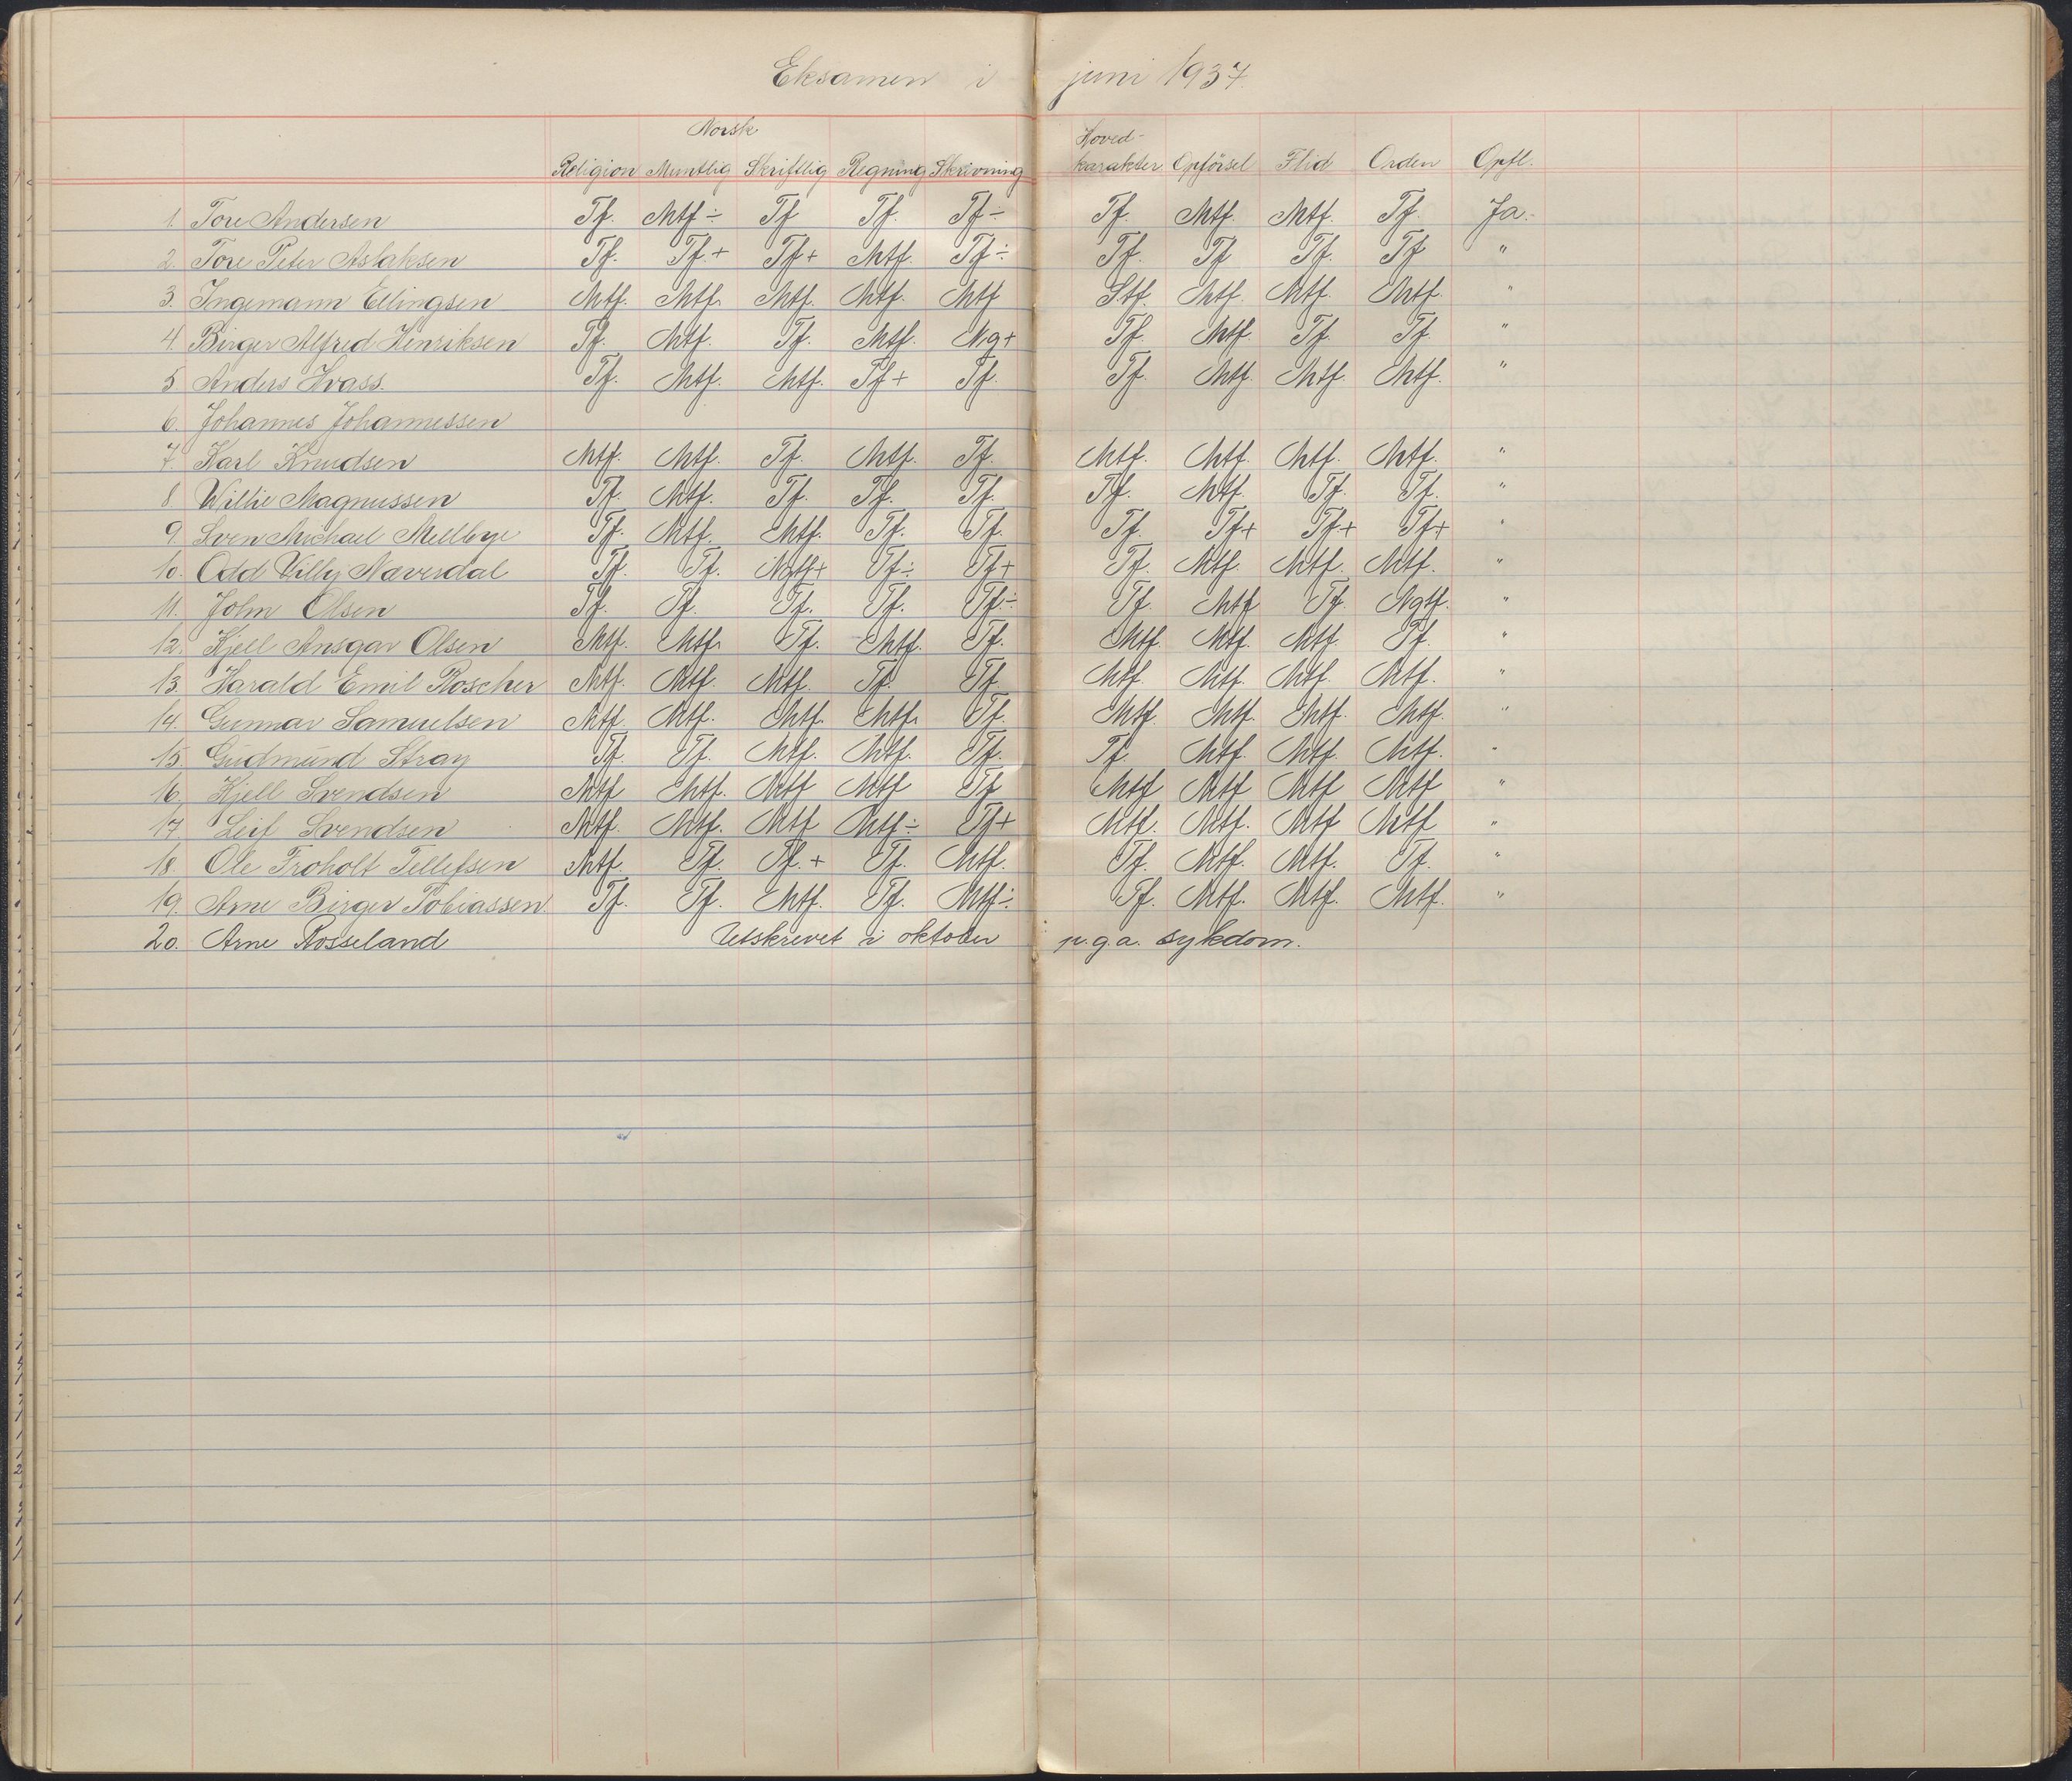 Eksamen i juni 1937.
Norsk Hoved-
Religion Muntlig Skriftlig Regning Skrivning karakter Opførsel Flid Orden Opfl.
1. Tore Andersen Tf. Mtf ÷ Tf Tf. Tf ÷ Tf. Mtf. Mtf. Tf. Ja.
2. Tore Peter Aslaksen Tf. Tf. + Tf + Mtf. Tf ÷ Tf. Tf Tf. Tf "
3. Ingemann Ellingsen Mtf. Mtf. Mtf. Mtf. Mtf Mtf. Mtf. Mtf. "
4. Birger Alfred Henriksen Tf. Mtf. Tf. Mtf. Ng + Tf. Mtf. Tf. Tf. "
5. Anders Hvass. Tf. Mtf. Mtf. Tf + Tf. Tf. Mtf. Mtf. Mtf. "
6. Johannes Johannessen
7. Karl Knudsen Mtf. Mtf. Tf. Mtf. Tf. Mtf. Mtf. Mtf. Mtf. "
8. Willie Magnussen Tf. Mtf. Tf. Tf. Tf. Tf. Mtf. Tf. Tf. "
9. Sven Michael Mellbye Tf. Mtf. Mtf. Tf. Tf. Tf. Tf+ Tf+ Tf+ "
10. Odd Villy Næverdal Tf. Tf. Mtf+ Tf ÷ Tf + Tf. Mtf. Mtf. Mtf. "
11. John Olsen Tf. Tf. Tf. Tf. Tf. ÷ Tf. Mtf Tf. Ngtf. "
12. Kjell Ansgar Olsen Mtf. Mtf. Tf. Mtf. Tf. Mtf. Mtf. Mtf. Tf. "
13. Harald Emil Roscher Mtf. Mtf. Mtf. Tf. Tf. Mtf. Mtf. Mtf. Mtf. "
14. Gunnar Samuelsen Mtf. Mtf. Mtf. Mtf. Tf. Mtf. Mtf. Mtf. Mtf. "
15. Gudmund Stray Tf. Tf. Mtf. Mtf. Tf. Tf. Mtf. Mtf. Mtf. "
16. Kjell Svendsen Mtf Mtf. Mtf Mtf Tf Mtf Mtf Mtf Mtf "
17. Leif Svendsen Mtf. Mtf. Mtf Mtf ÷ Tf + Mtf. Mtf. Mtf Mtf "
18. Ole Troholt Tellefsen Mtf. Tf. Tf. + Tf. Mtf. Tf. Mtf. Mtf. Tf. "
19. Arne Birger Tobiassen Tf. Tf. Mtf. Tf. Mtf ÷ Tf. Mtf. Mtf. Mtf. "
20. Arne Rosseland Utskrevet i oktober p.g.a. sykdom.